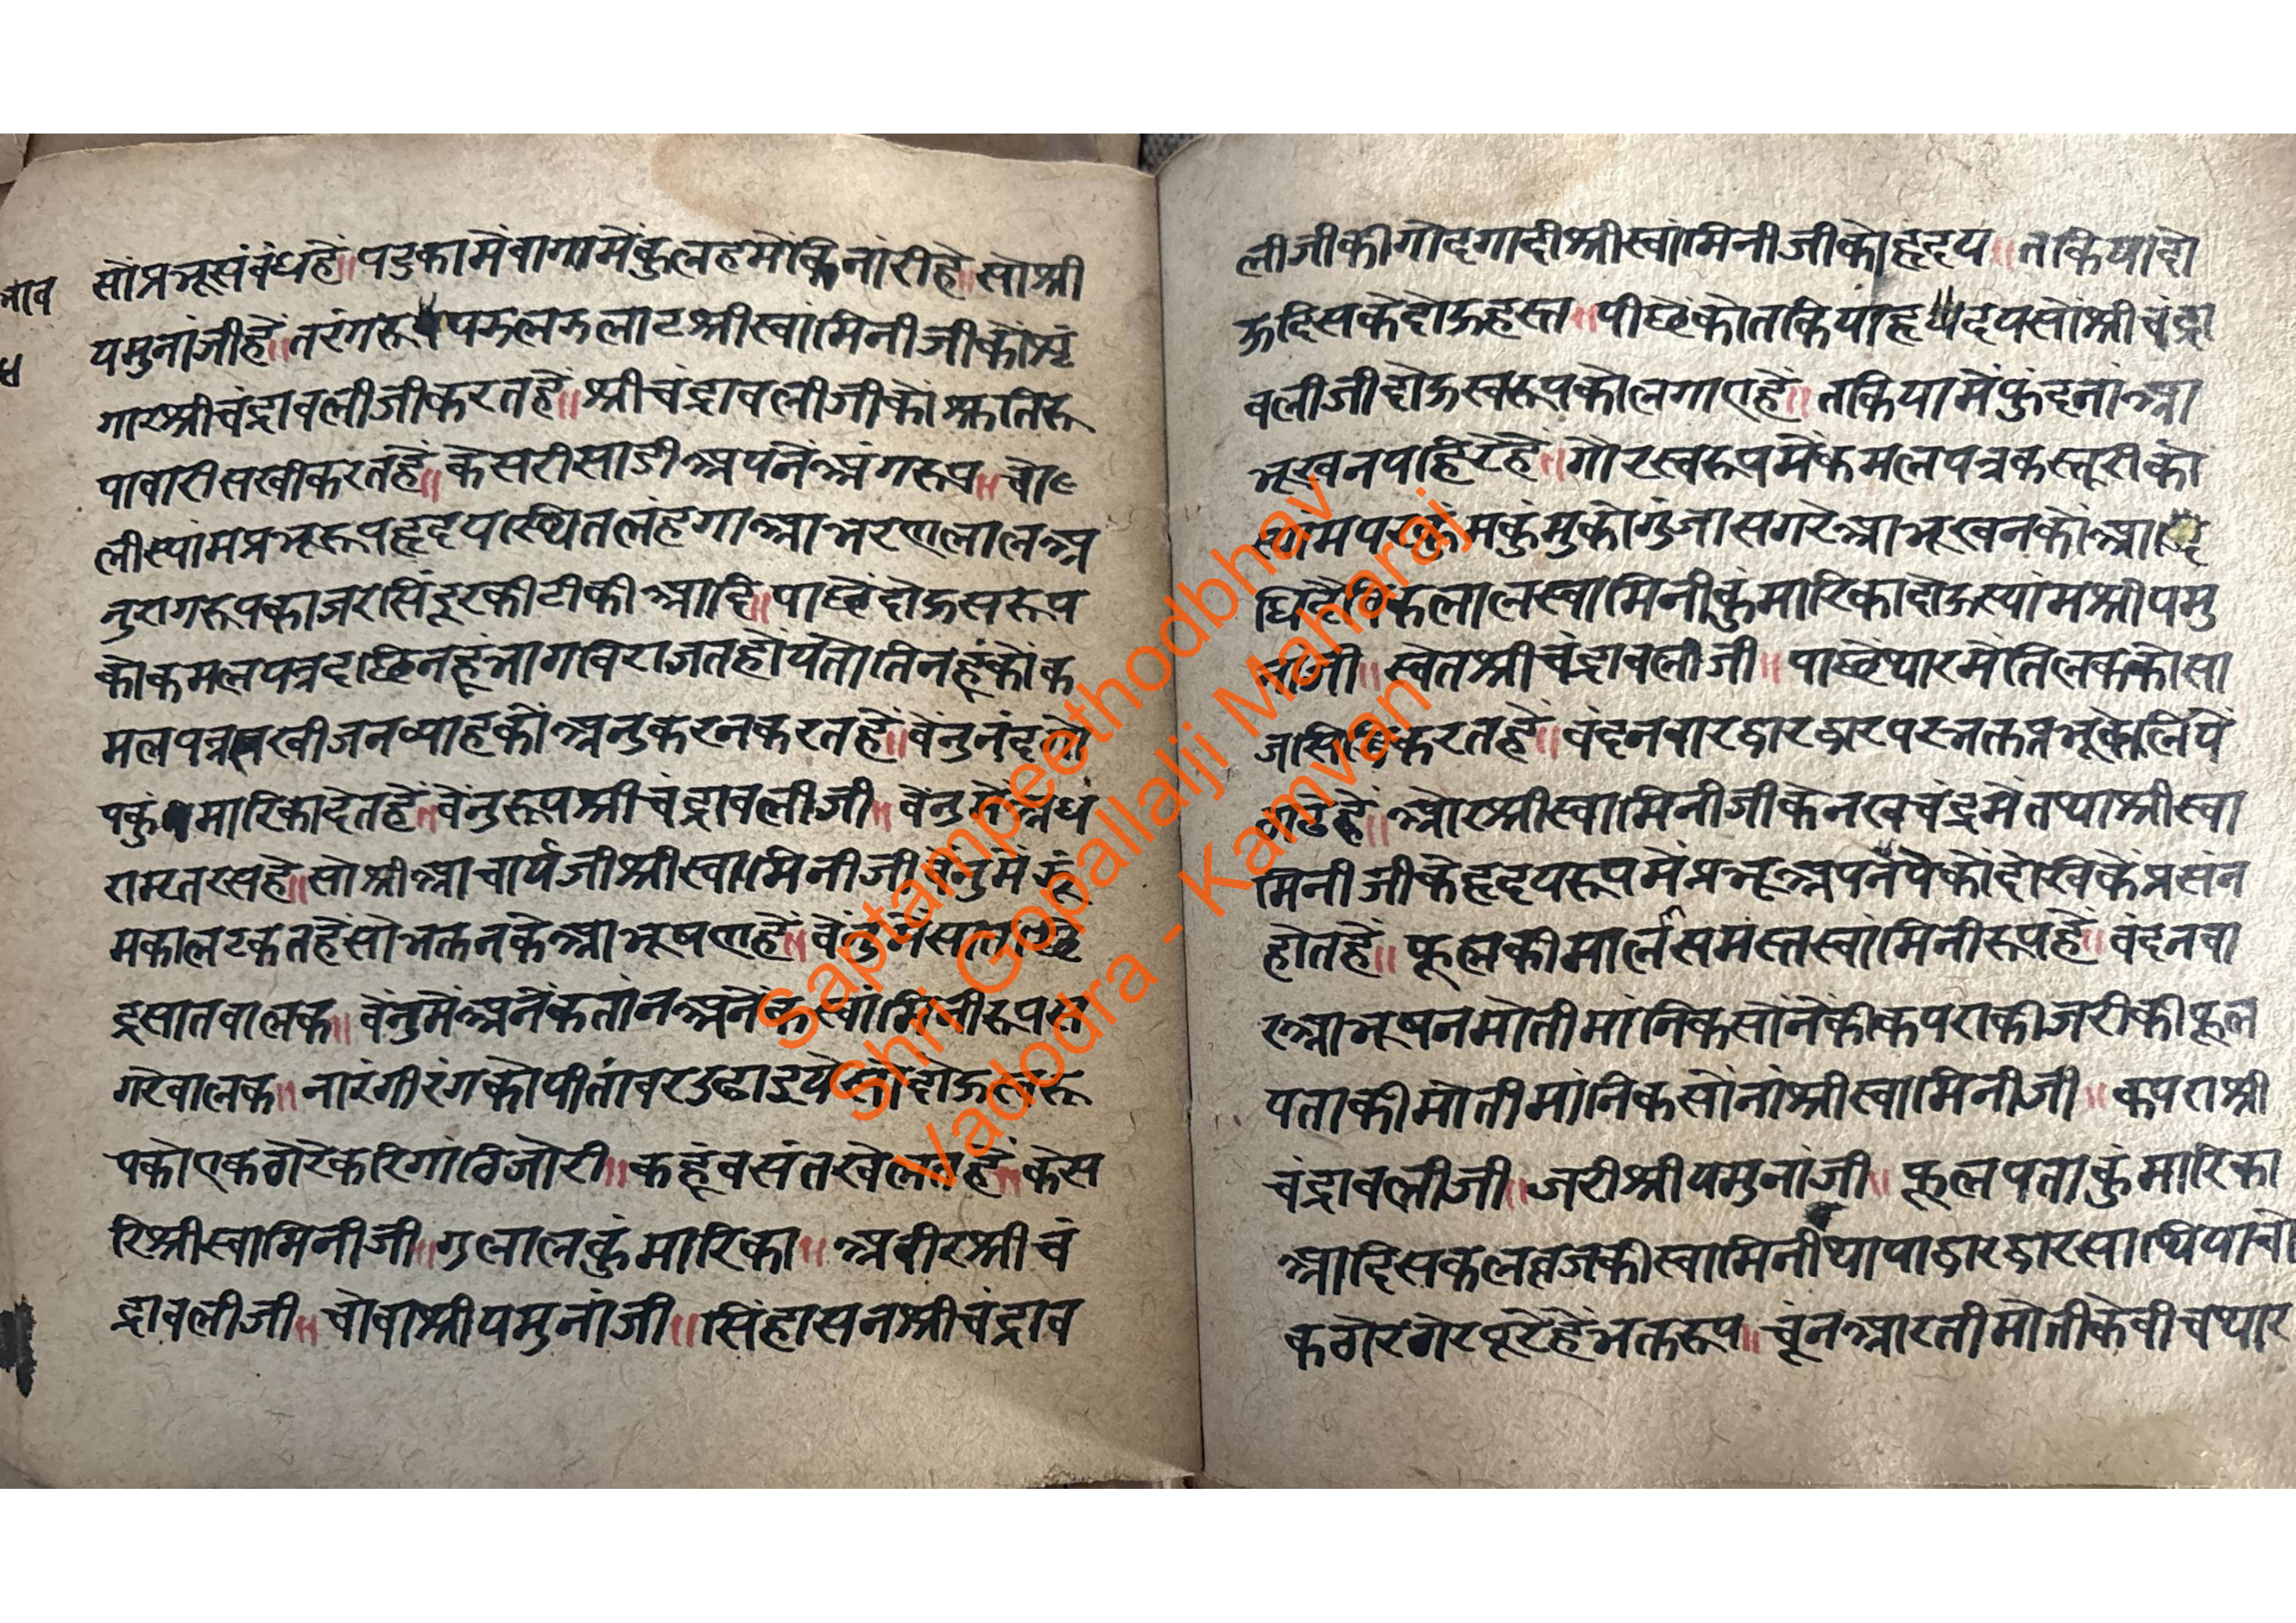 भाव
सोंप्रभूसंबंधहें॥पटुकामेंवागामेंकुलहमेंकिनारीहे॥सोश्री
यमुनांजीहें॥तरंगरूपझलझलाटश्रीस्वांमिनीजीकोंशृं
गारश्रीचंद्रावलीजीकरतहें॥श्रीचंद्रावलीजीकीआतिरू
पावारीसखीकरतहें॥केसरीसाडीअपनेंअंगरूप॥चो
लीस्यांमप्रभूरूपहृदयस्थितलंहगाआभरणलालअ
नुरागरूपकाजरसिंदूरकीटीकीआदि॥पाछेंदोऊसरूप
कोकमलपत्रदाछिनहूंभागविराजतहोंयतातिनहूंकोंक
मलपत्रसखीजनव्याहकोंअनुकरनकरतहें॥वेंनुनंदरा
यकुंमारिकादेतहें॥वेंनुरूपश्रीचंद्रावलीजी॥वेंनुमेंअध
रामृतरसहे॥सोश्रीआचार्यजीश्रीस्वामिनीजीवेंनुमेंझूं
मकालटकतहेंसोभक्तनकेआभूषणहें॥वेंनुमेंसातछि
द्रसातवालक॥वेंनुमेंअनेंकतांनअनेंकस्वांमिनीरूपस
गरेवालक॥नारंगीरंगकोपीतांवरउढाइयेसोदोऊसरू
पकोएकठोरेकरिगांठिजोरी॥कहूंवसंतखेलतहें॥केस
रिश्रीस्वामिनीजी॥गुलालकुंमारिका॥अवीरश्रीचं
द्रावलीजी॥चोवाश्रीयमुनांजी॥सिंहासनश्रीचंद्राव
लीजीकीगोदगादीश्रीस्वांमिनीजीकोहृदय॥तकियादो
ऊदिसकेदोऊहस्त॥पीछेंकोतकियाहृदयसोंश्रीचंद्रा
वलीजीदोऊस्वरूपकोलगाएहें॥तकियामेंफुंदनांआ
भूखनपहिरेहें॥गोरस्वरूपमेंकमलपत्रकस्तूरीको
स्यामपरकुंमकुंमुकोगुंजासगरेआभूखनकोआ
धिदैविकलालस्वामिनीकुंमारिकादोऊस्यांमश्रीयमु
नांजी॥स्वेतश्रीचंद्रावलीजी॥पाछेंथारमेंतिलककोसा
जसिद्धिकरतहें॥वंदनवारद्वारद्वारपरभक्तप्रभूकेलियें
ठाडेहें॥ओरश्रीस्वामिनीजीकेनखचंद्रमेंतथाश्रीस्वा
मिनीजीकेहृदयरूपमेंप्रभूअपनेंपेंकोंदेखिकेंप्रसंन
होतहें॥फूलकीमालसमस्तस्वांमिनीरूपहें॥वंदनवा
रआभूषनमोतीमांनिकसोंनेंकीकपराकीजरीकीफूल
पताकीमोतीमांनिकसोंनांश्रीस्वामिनीजी॥कपराश्री
चंद्रावलीजी॥जरीश्रीयमुनांजी॥फूलपताकुंमारिका
आदिसकलव्रजकीस्वामिनीथापाद्वारद्वारसाथियाचो
कठोरठोरपूरेहेंभक्तरूप॥चूंनआरतीमोतीकेवीचथार
Saptampeethodbhav
Shri Gopallalji Maharaj
Vadodra - Kamvan